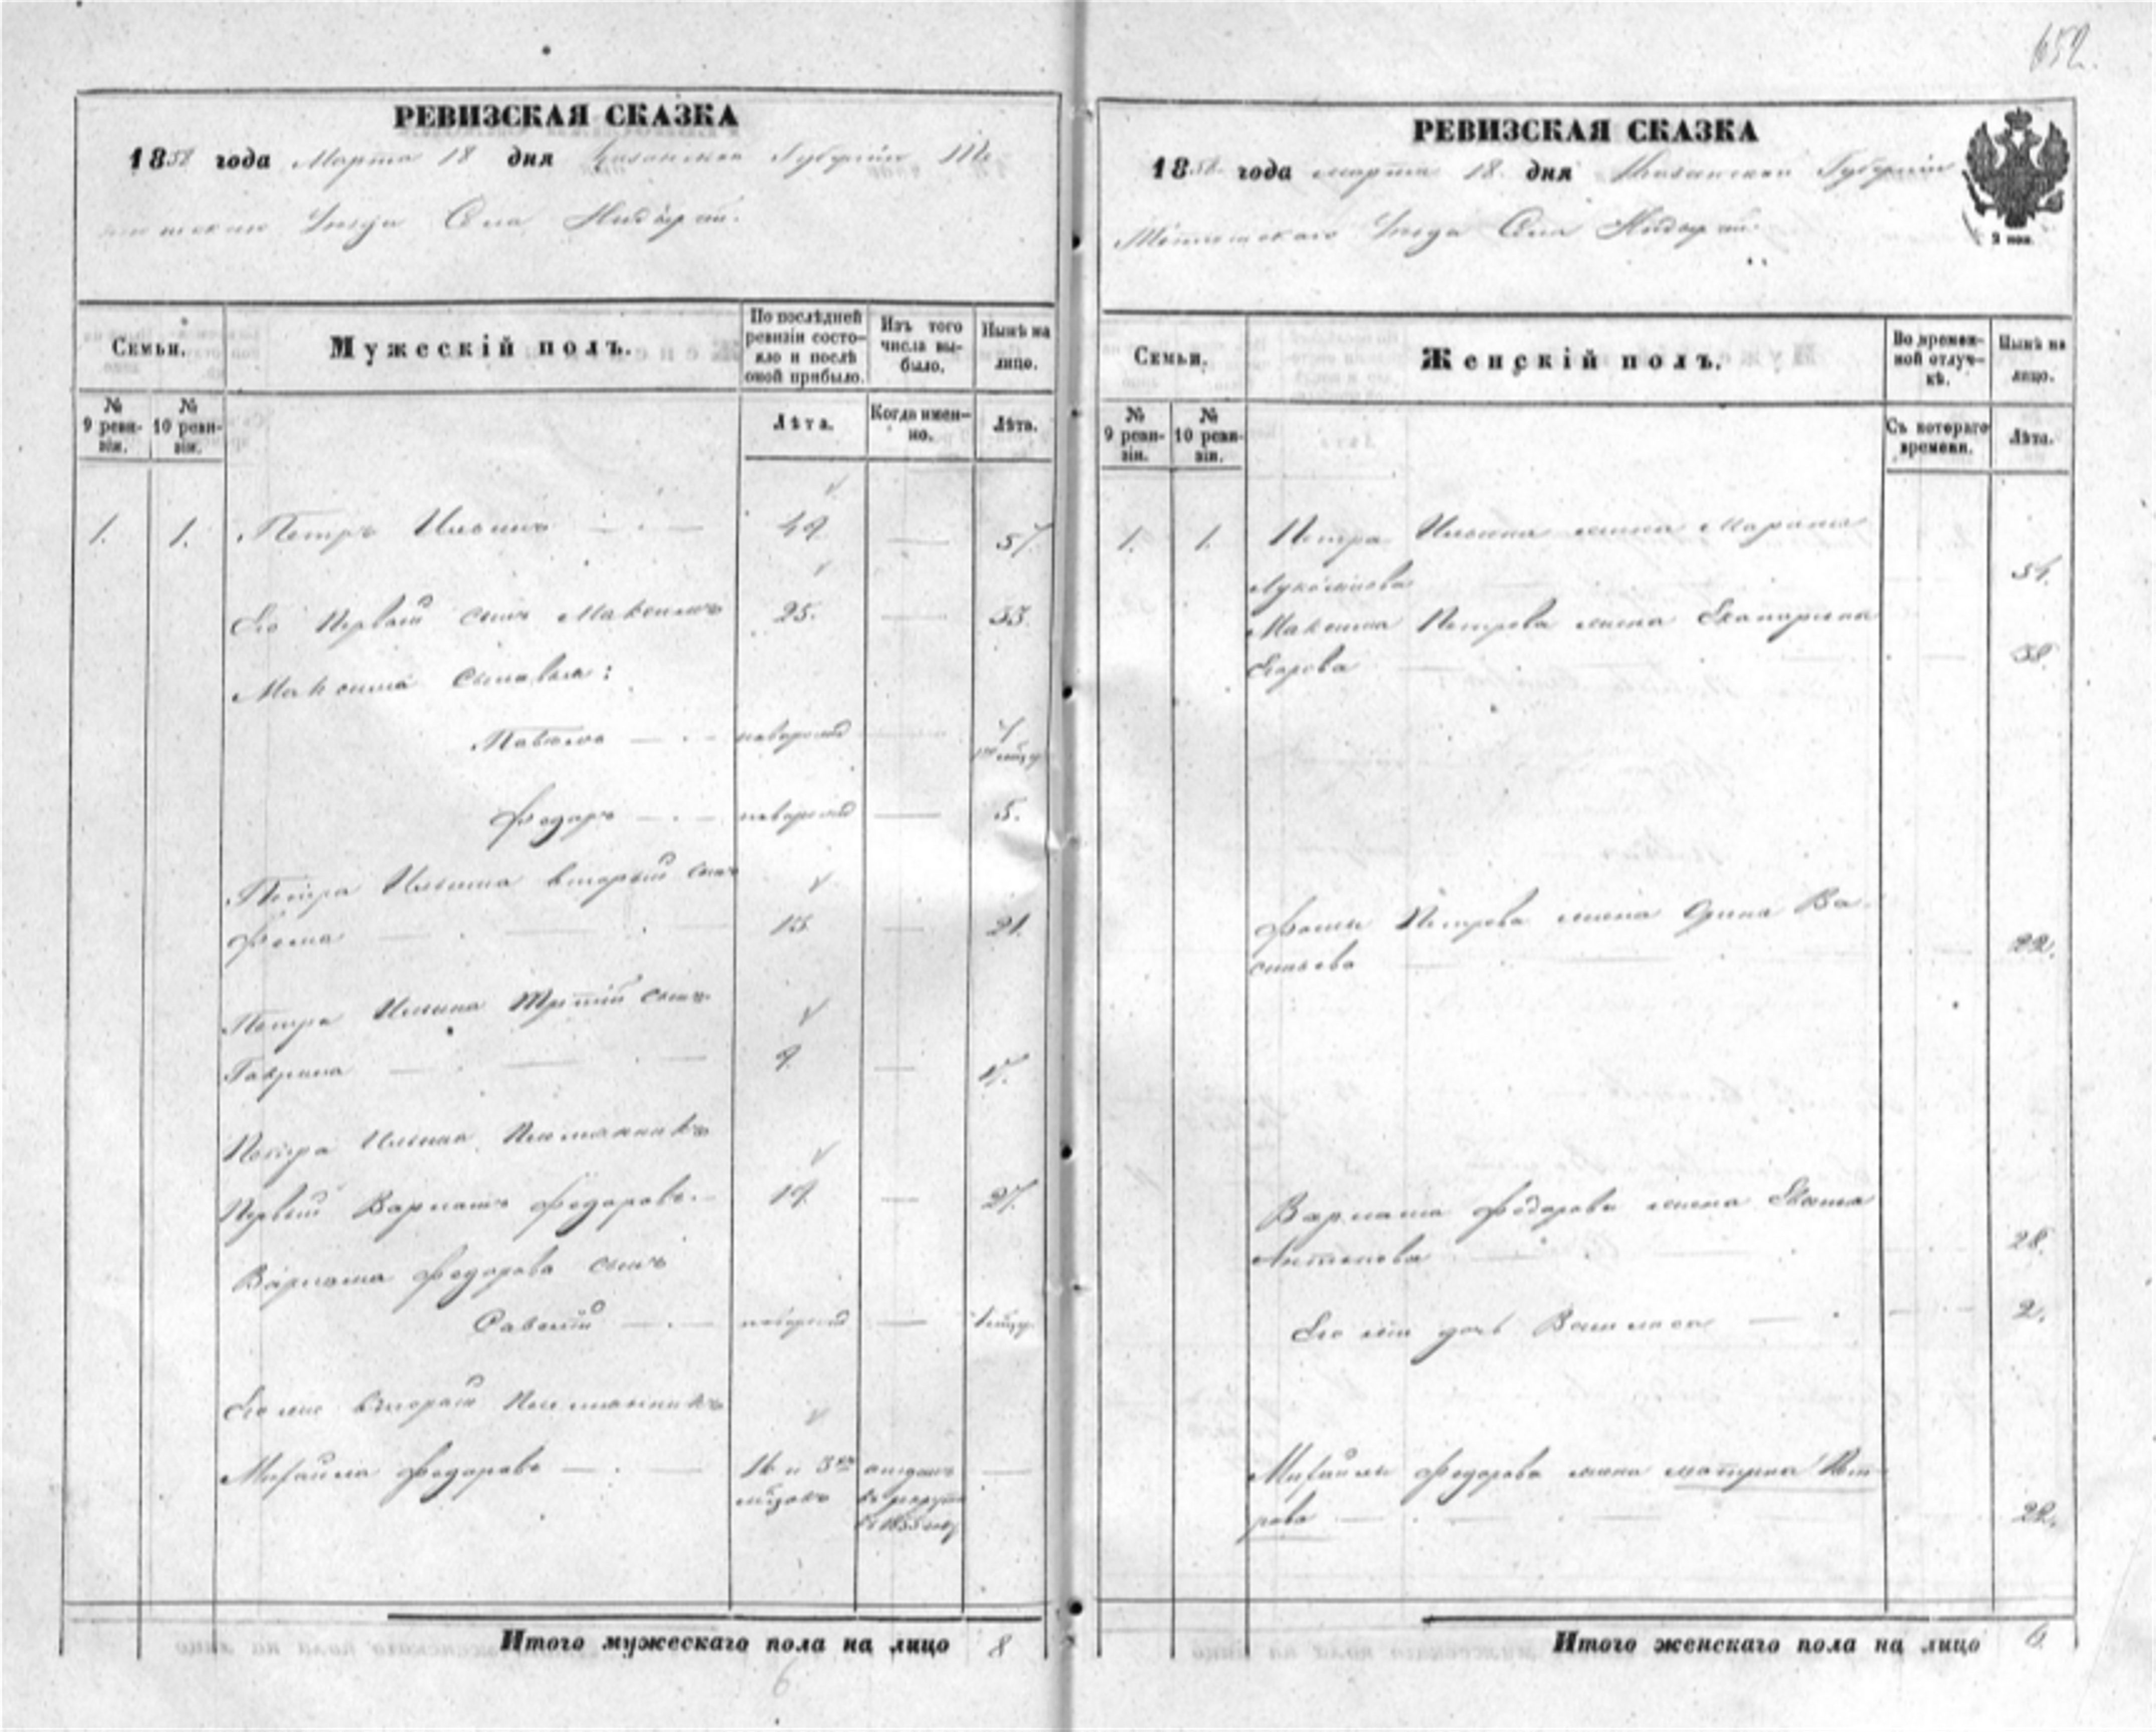 652.
РЕВИЗСКАЯ СКАЗКА
1858 года Марта 18 дня Казанской Губерніи
Уезда Села
Семьи.
Мужескій полъ.
По послѣдней ревизіи состояло и послѣ оной прибыло.
Изъ того числа выбыло.
Нынѣ на лицо.
№ 9 ревизіи.
№ 10 ревизіи.
Лѣта.
Когда именно.
Лѣта.
1. 1. Петръ Ильинъ 49 57
Его Первый сынъ Максимъ 25. 33.
Максима сыновья:
новорожд
Федоръ новорожд 5.
Петра Ильина вторый сынъ
Фома 13 21.
Петра Ильина Третій сынъ
Гаврила 9 17.
Петра Ильина Племянникъ
Первый Варламъ Федоровъ 19. 27.
Варлама Федорова сынъ
Савелій новорожд
Его же вторый Племянникъ
Михайла Федоровъ 16 и отданъ
въ рекруты
Итого мужескаго пола на лицо 8
6
РЕВИЗСКАЯ СКАЗКА
1858 года марта 18 дня Казанской Губерніи
Уезда Села
Семьи.
Женскій полъ.
Во временной отлучкѣ.
Нынѣ на лицо.
№ 9 ревизіи.
№ 10 ревизіи.
Съ котораго времени.
Лѣта.
1. 1. Петра Ильина жена Марина
54.
Максима Петрова жена Екатерина
Егорова 38.
Фомы Петрова жена Орина Ва-
сильева 22.
Варлама Федорова жена
Антонова 28.
Его же дочь Василиса 2.
Михайлы Федорова жена матрена Пет-
рова 22.
Итого женскаго пола на лицо 6